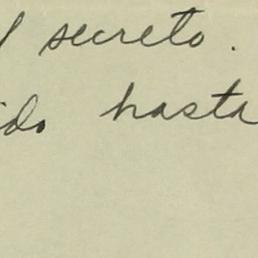 l secreto.
ido hasta